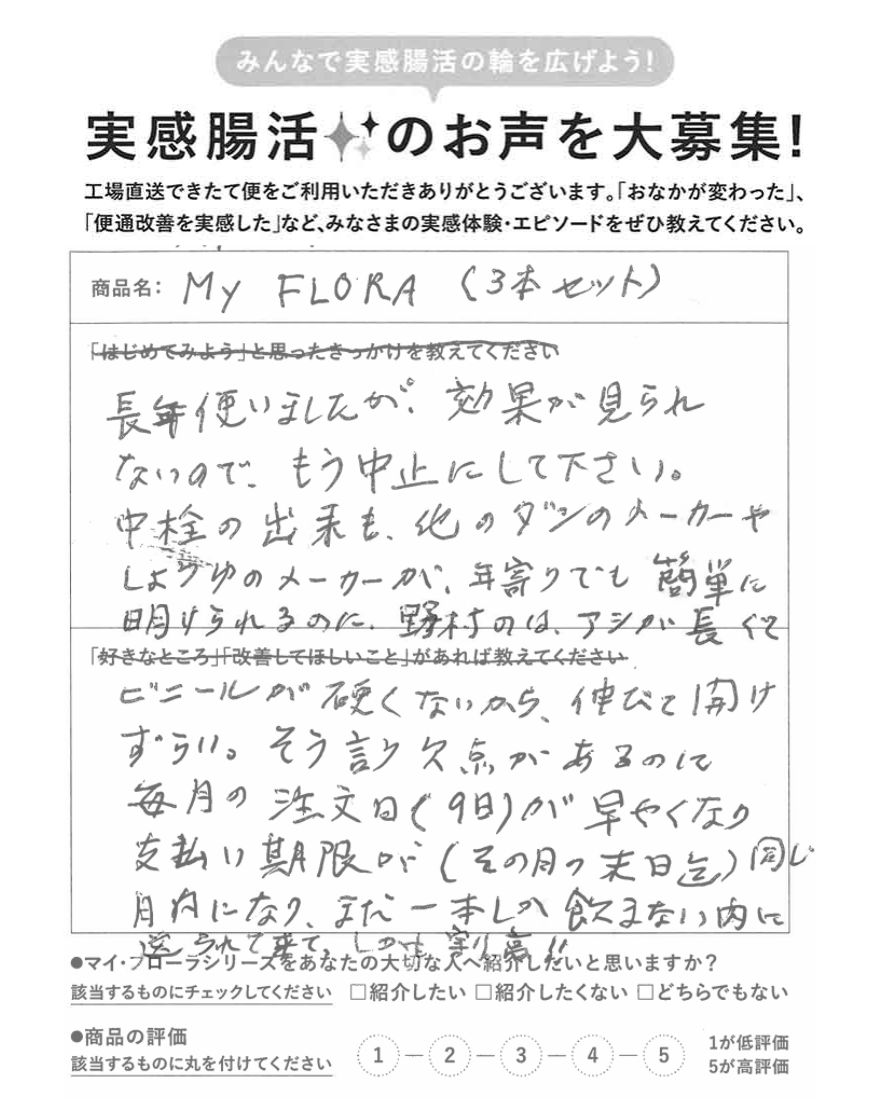 みんなで実感腸活の輪を広げよう!
実感腸活のお声を大募集!
工場直送できたて便をご利用いただきありがとうございます。「おなかが変わった」、
「便通改善を実感した」など、みなさまの実感体験・エピソードをぜひ教えてください。
商品名: My FLORA (3本セット)
「はじめてみよう」と思ったきっかけを教えてください
長年使いましたが、効果が見られ
ないので、もう中止にして下さい。
中栓の出来も、他のダシのメーカーや
しょうゆのメーカーが、年寄りでも簡単に
明けられるのに、野村のは、アシが長くて
「好きなところ」「改善してほしいこと」があれば教えてください
ビニールが硬くないから、伸びて開け
ずらい。そう言う欠点があるのに
毎月の注文日(9日)が早やくなり
支払い期限が(その月の末日迄)同じ
月内になり、まだ一本しか飲まない内に
送られて来て、しかも割り高!!
●マイ・フローラシリーズをあなたの大切な人へ紹介したいと思いますか?
該当するものにチェックしてください □紹介したい □紹介したくない □どちらでもない
●商品の評価
該当するものに丸を付けてください 1 — 2 — 3 — 4 — 5
1が低評価
5が高評価